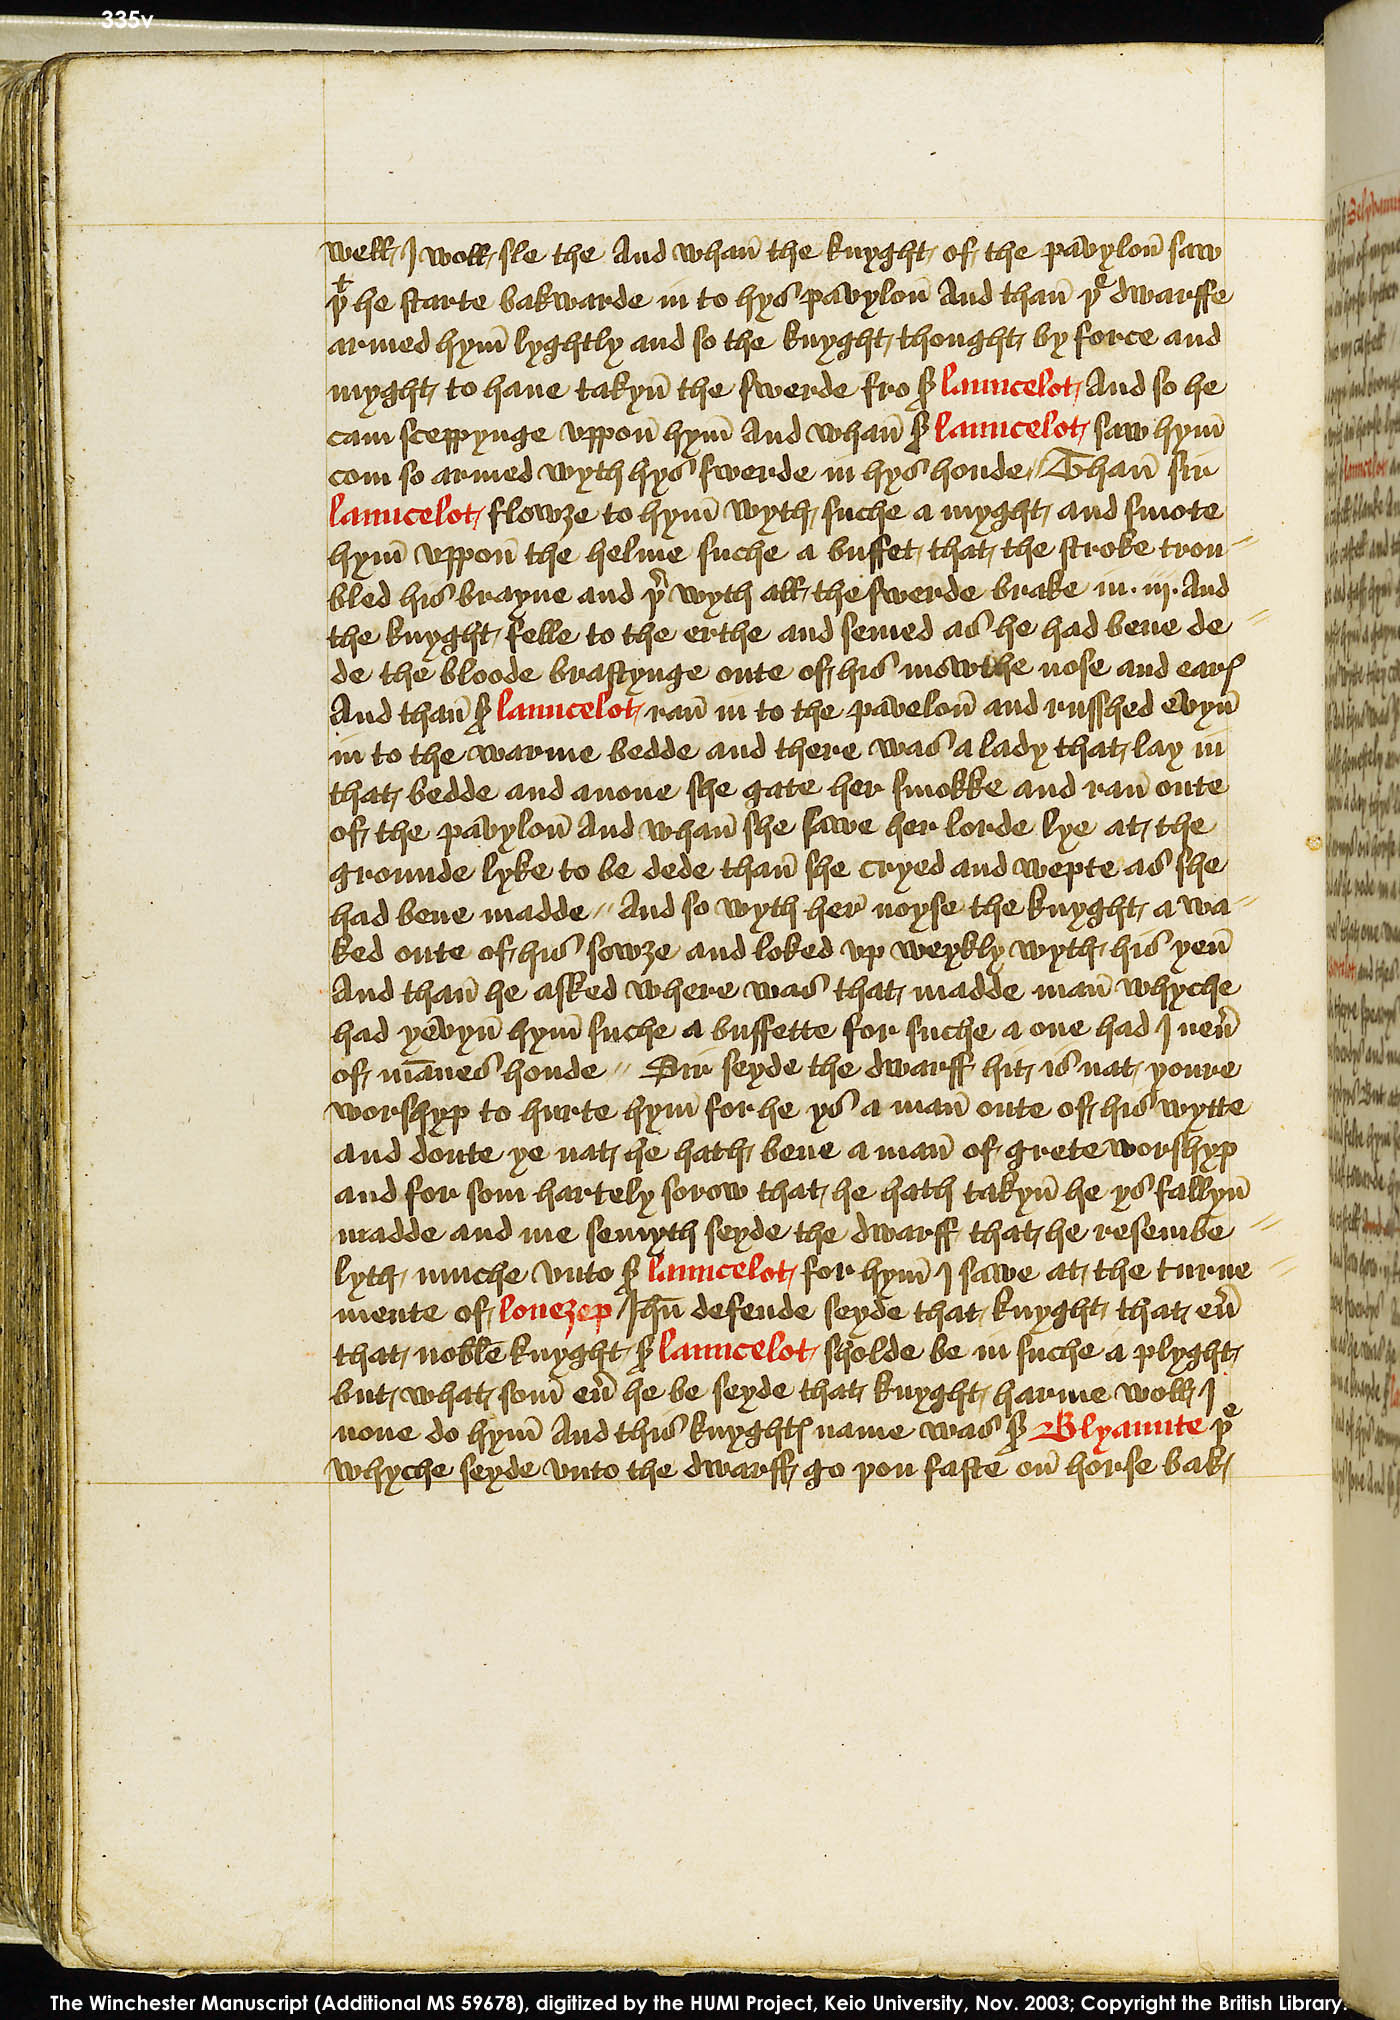 335v
well I woll sle the And whan̄ the knyght of the pāvylon̄ saw
þͭ he starte bakwarde in to hys pāvylon̄ And than̄ þͤ dwarffe
armed hym̄ lyghtly and so the knyght thought by force and
myght to haue takyn̄ the swerde fro sꝭ launcelot And so he
cam steppynge vppon̄ hym̄ And whan̄ sꝭ launcelot saw hym̄
com so armed wyth hys swerde in hys honde // Than̄ sir
launcelot flowȝe to hym̄ wyth suche a myght and smote
hym̄ vppon̄ the helme suche a buffet that the stroke trou //
bled his brayne and þ̄ wyth all the swerde brake in .iij. And
the knyght felle to the erthe and semed as he had bene de //
de the bloode brastynge oute of his mowthe nose and earꝭ
And than̄ sꝭ launcelot ran̄ in to the pāvelon̄ and russhed ēvyn̄
in to the warme bedde and there was a lady that lay in
that bedde and anone she gate her smokke and ran̄ oute
of the pāvylon̄ And whan̄ she sawe her lorde lye at the
grounde lyke to be dede than̄ she cryed and wepte as she
had bene madde // And so wyth her̄ noyse the knyght a wa //
ked oute of his sowȝe and loked vp weykly wyth his yen̄
And than̄ he asked where was that madde man̄ whyche
had yēvyn̄ hym̄ suche a buffette for suche a one had I neū
of mānes honde // Sir seyde the dwarff hit is nat youre
worshyp to hurte hym̄ for he ys a man̄ oute of his wytte
and doute ye nat he hath bene a man̄ of grete worshyp
and for som hartely sorow that he hath takyn̄ he ys fallyn̄
madde and me semyth seyde the dwarff that he resembe //
lyth muche vnto sꝭ launcelot for hym̄ I sawe at the turne //
mente of loueȝep / Ihū defende seyde that knyght that eū
that noble knyght sꝭ launcelot sholde be in suche a plyght
but what som̄ eū he be seyde that knyght harme woll I
none do hym̄ And this knyghtꝭ name was sꝭ Blyaunte þͤ
whyche seyde vnto the dwarff go þou faste on̄ horse bak
The Winchester Manuscript (Additional MS 59678), digitized by the HUMI Project, Keio University, Nov. 2003; Copyright the British Library.